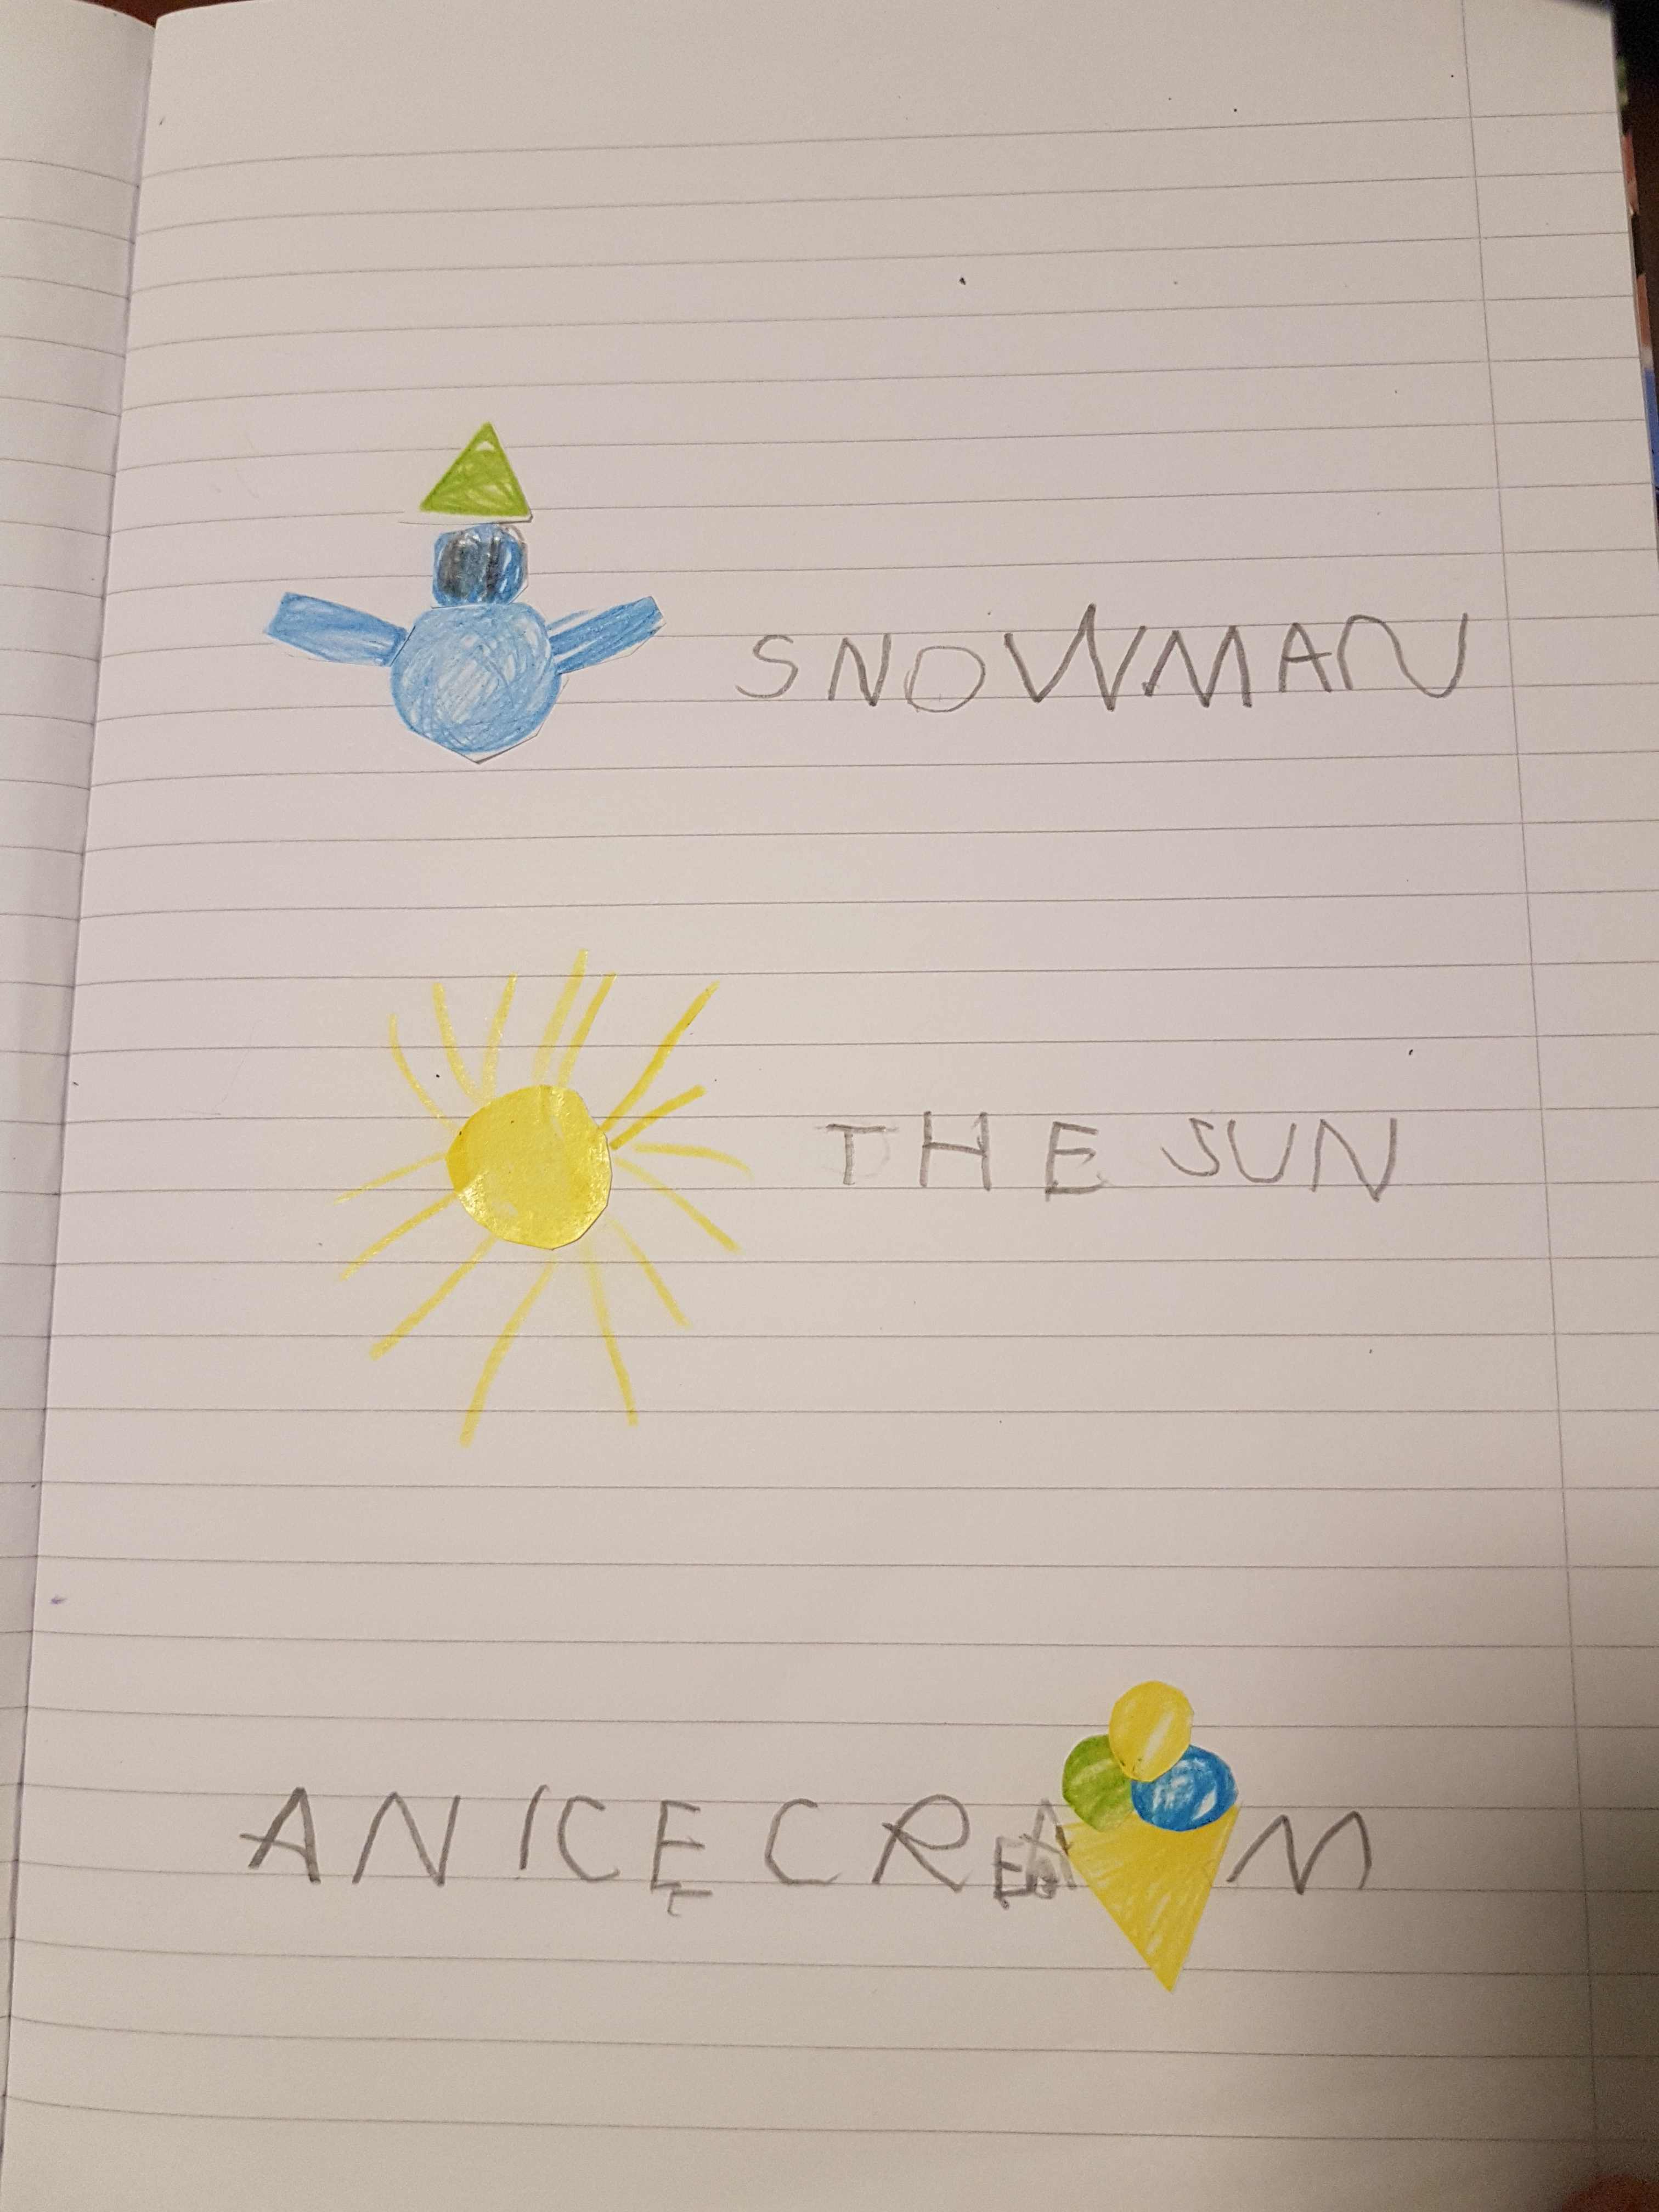 SNOWMAN
THE SUN
AN ICE CREAM